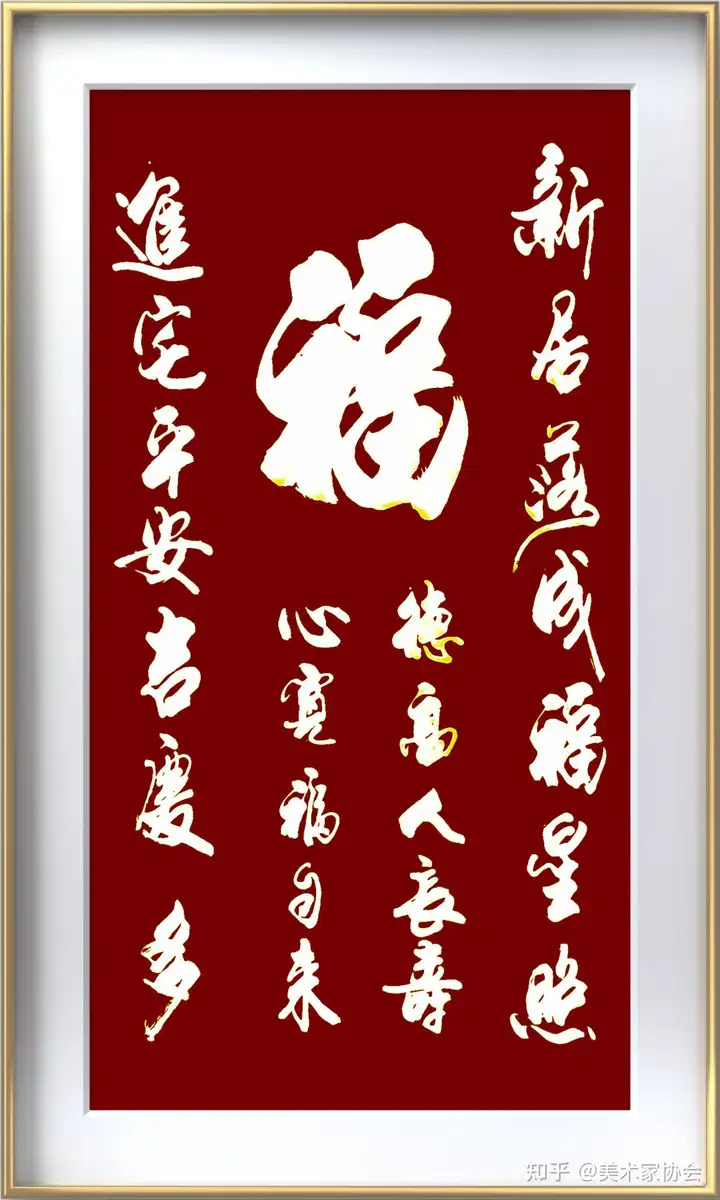 新居落成福星照
福
德高人長壽
心寬福自来
進宅平安吉慶多
知乎 @美术家协会